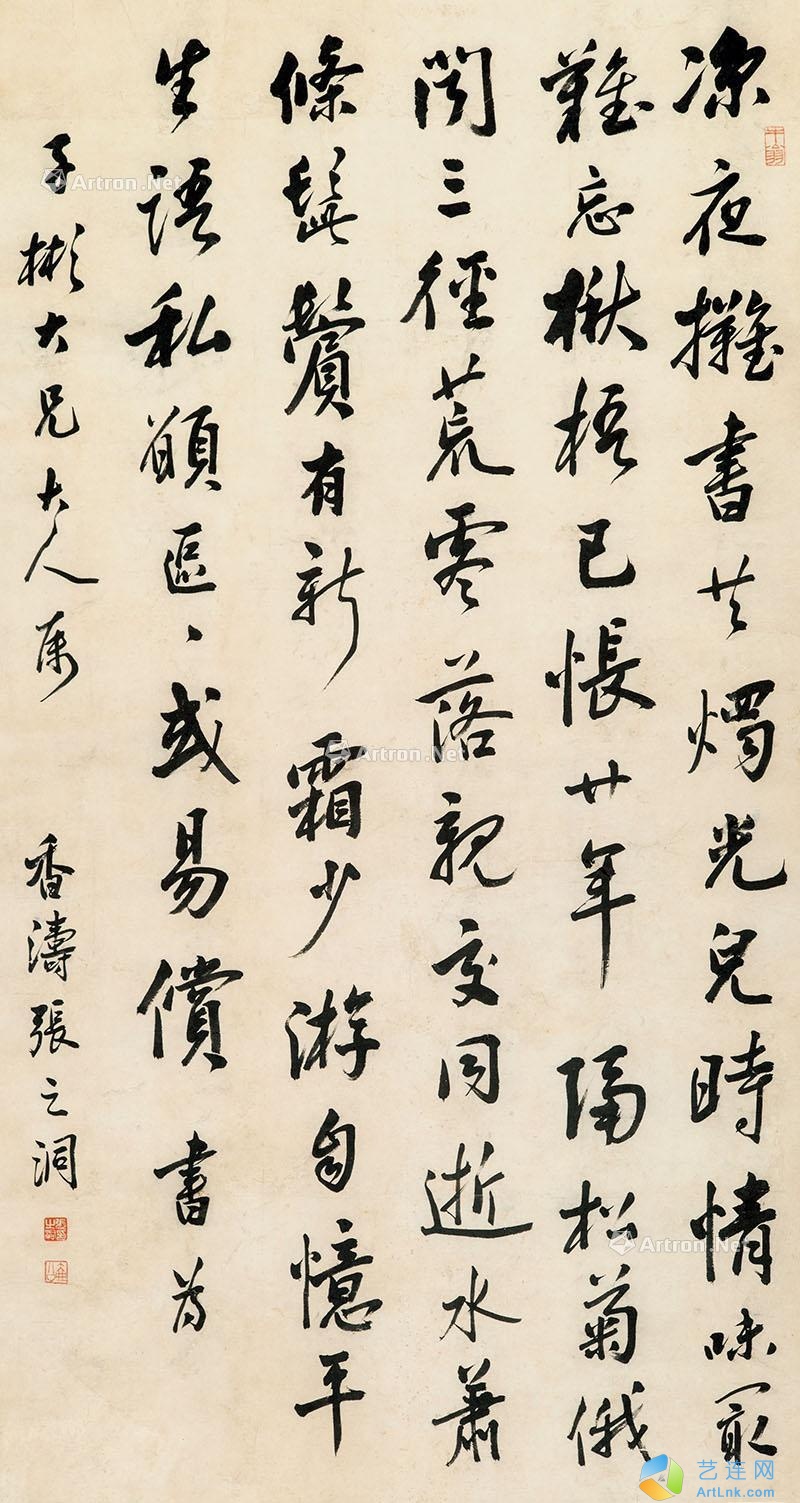 凉夜攤書共燭光兒時情味最
難忘楸梧已悵廿年隔松菊俄
閒三徑荒零落親交同逝水蕭
條鬢鬢有新霜少游自憶平
生語私願區〻或易償 書為
子彬大兄大人屬
香濤張之洞
Artron.Net
Artron.Net
Artron.Net
艺连网
ArtLnk.com